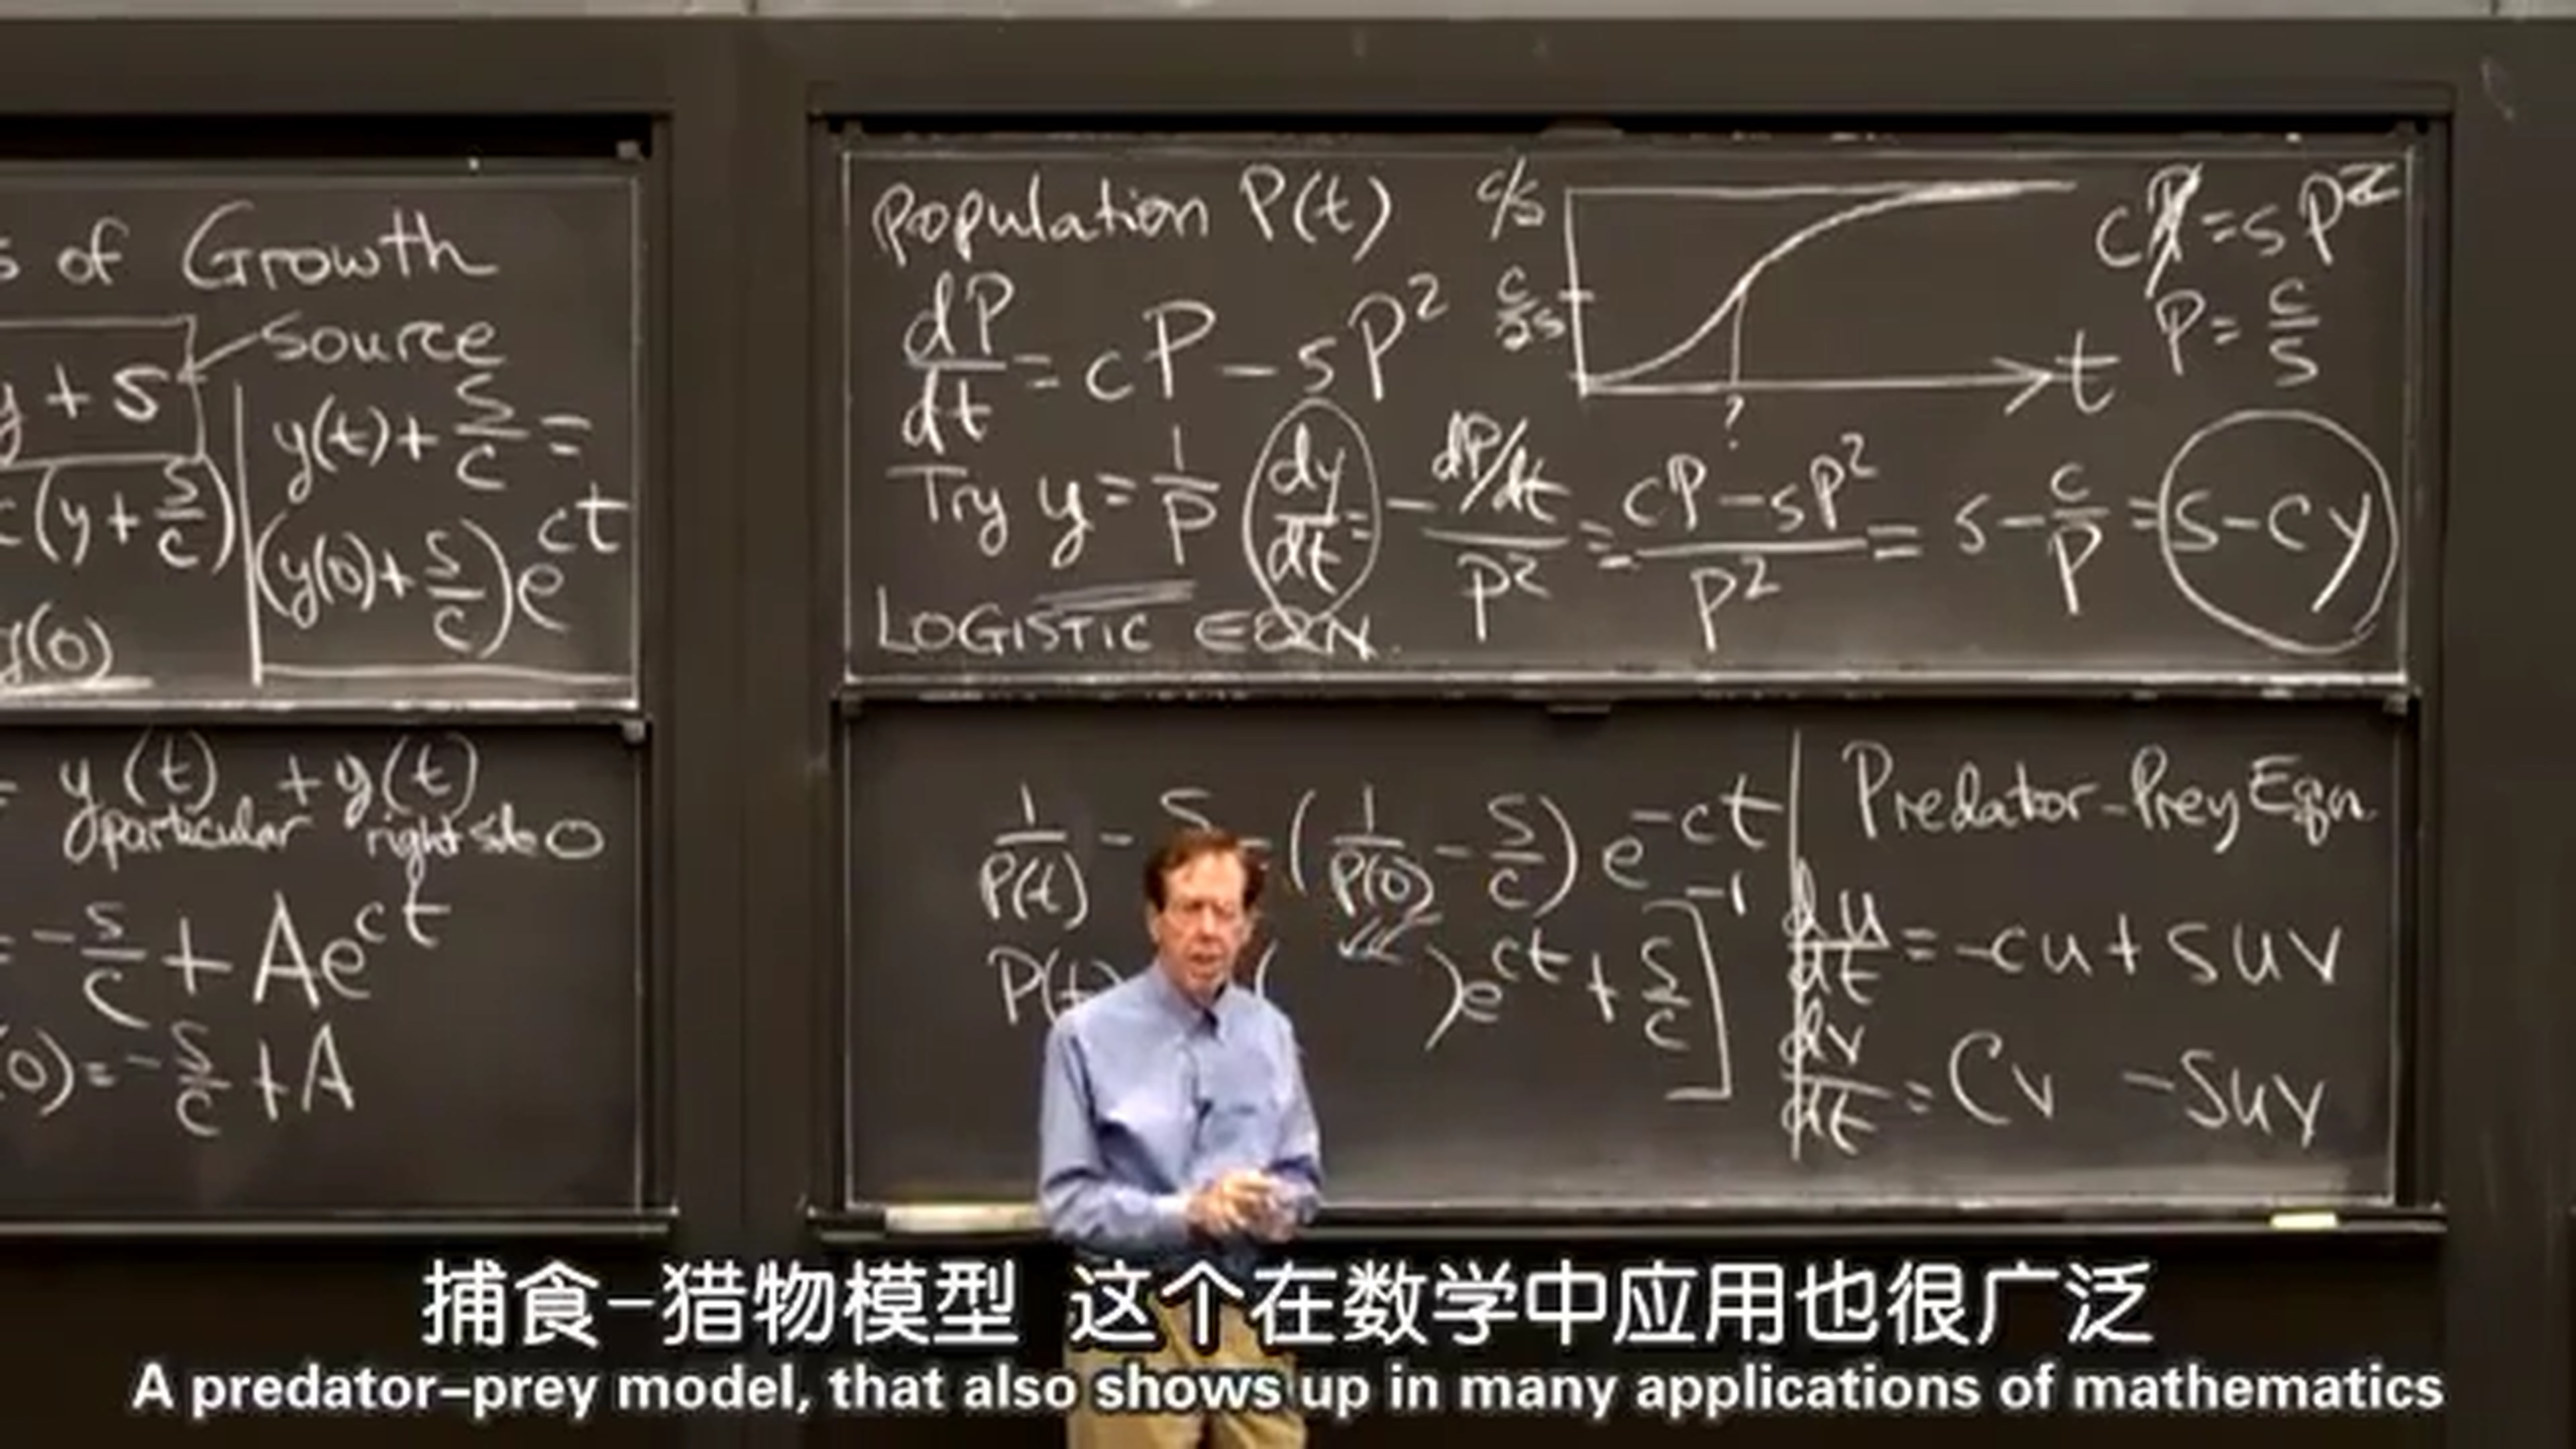 s of Growth
source
y + s
y(t) + s/c =
c(y + s/c)
(y(0) + s/c) e^ct
y(0)
= y(t) + y(t)
particular right side 0
= -s/c + Ae^ct
(0) = -s/c + A
Population P(t)
dP/dt = cP - sP²
c/s
c/2s
?
t
cP = sP²
P = c/s
Try y = 1/P
dy/dt = -dP/dt / P² = cP - sP² / P² = s - c/P = s - cy
LOGISTIC EQN.
1/P(t) - s (1/P(0) - s/c) e^-ct
P(t) ( ) e^ct + s/c ]^-1
Predator-Prey Eqn.
du/dt = -cu + suv
dv/dt = Cv - Suv
捕食-猎物模型 这个在数学中应用也很广泛
A predator-prey model, that also shows up in many applications of mathematics